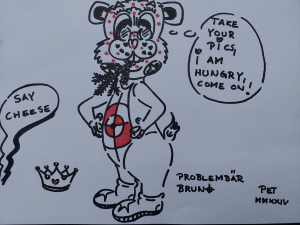 TAKE
YOUR
PICS,
I AM
HUNGRY,
COME ON!
SAY
CHEESE
PROBLEMBÄR
BRUNO
PET
MMXXIV